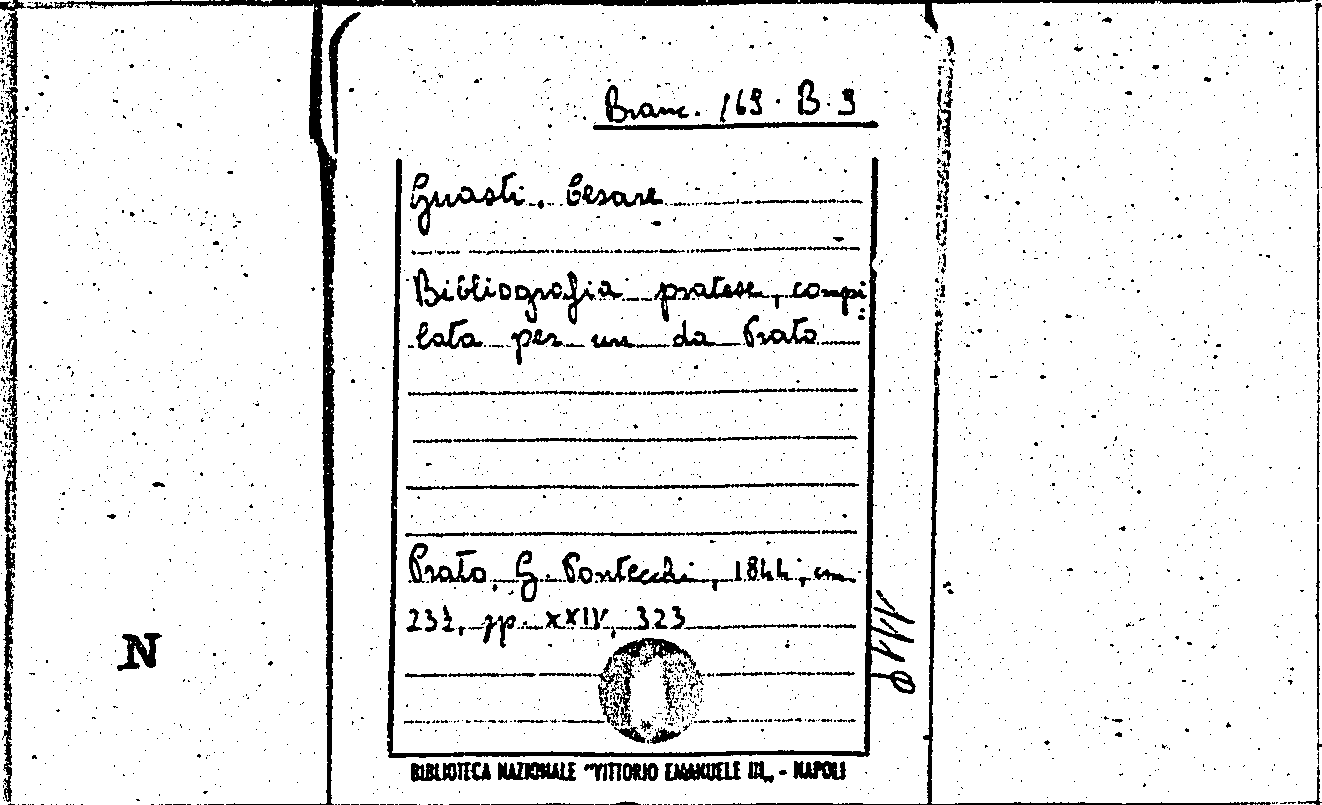 Branc. 169. B. 9
Guasti. Cesare
Bibliografia pratese, compi
lata per un da Prato
Prato, G. Pontecchi, 1844, cm
23½, pp. XXIV, 323
N
BIBLIOTECA NAZIONALE "VITTORIO EMANUELE III„ - NAPOLI